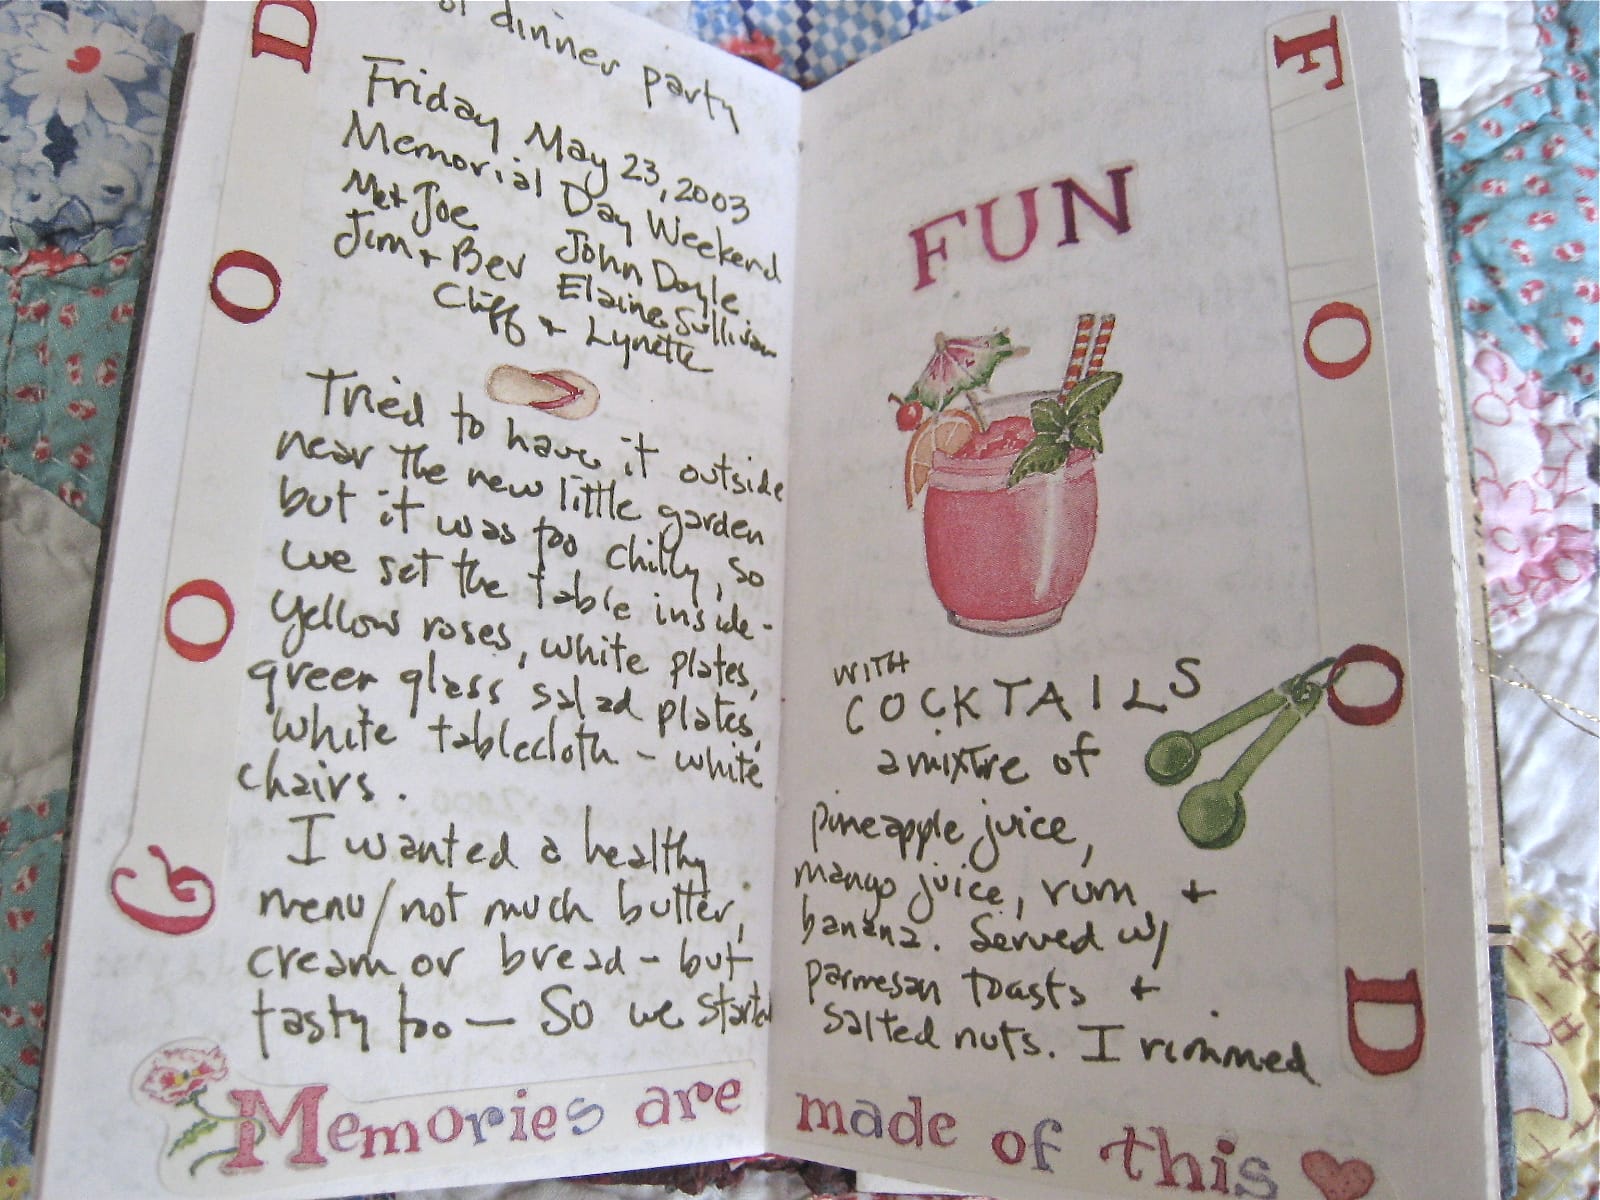 GOOD
of dinner party
Friday May 23, 2003
Memorial Day Weekend
Me + Joe John Doyle
Jim + Bev Elaine Sullivan
Cliff + Lynette
Tried to have it outside
near the new little garden
but it was too chilly, so
we set the table inside -
yellow roses, white plates,
green glass salad plates,
white tablecloth - white
chairs.
I wanted a healthy
menu/not much butter,
cream or bread - but
tasty too — So we started
Memories are
FOOD
FUN
WITH
COCKTAILS
a mixtre of
pineapple juice,
mango juice, rum +
banana. Served w/
parmesan toasts +
salted nuts. I rimmed
made of this